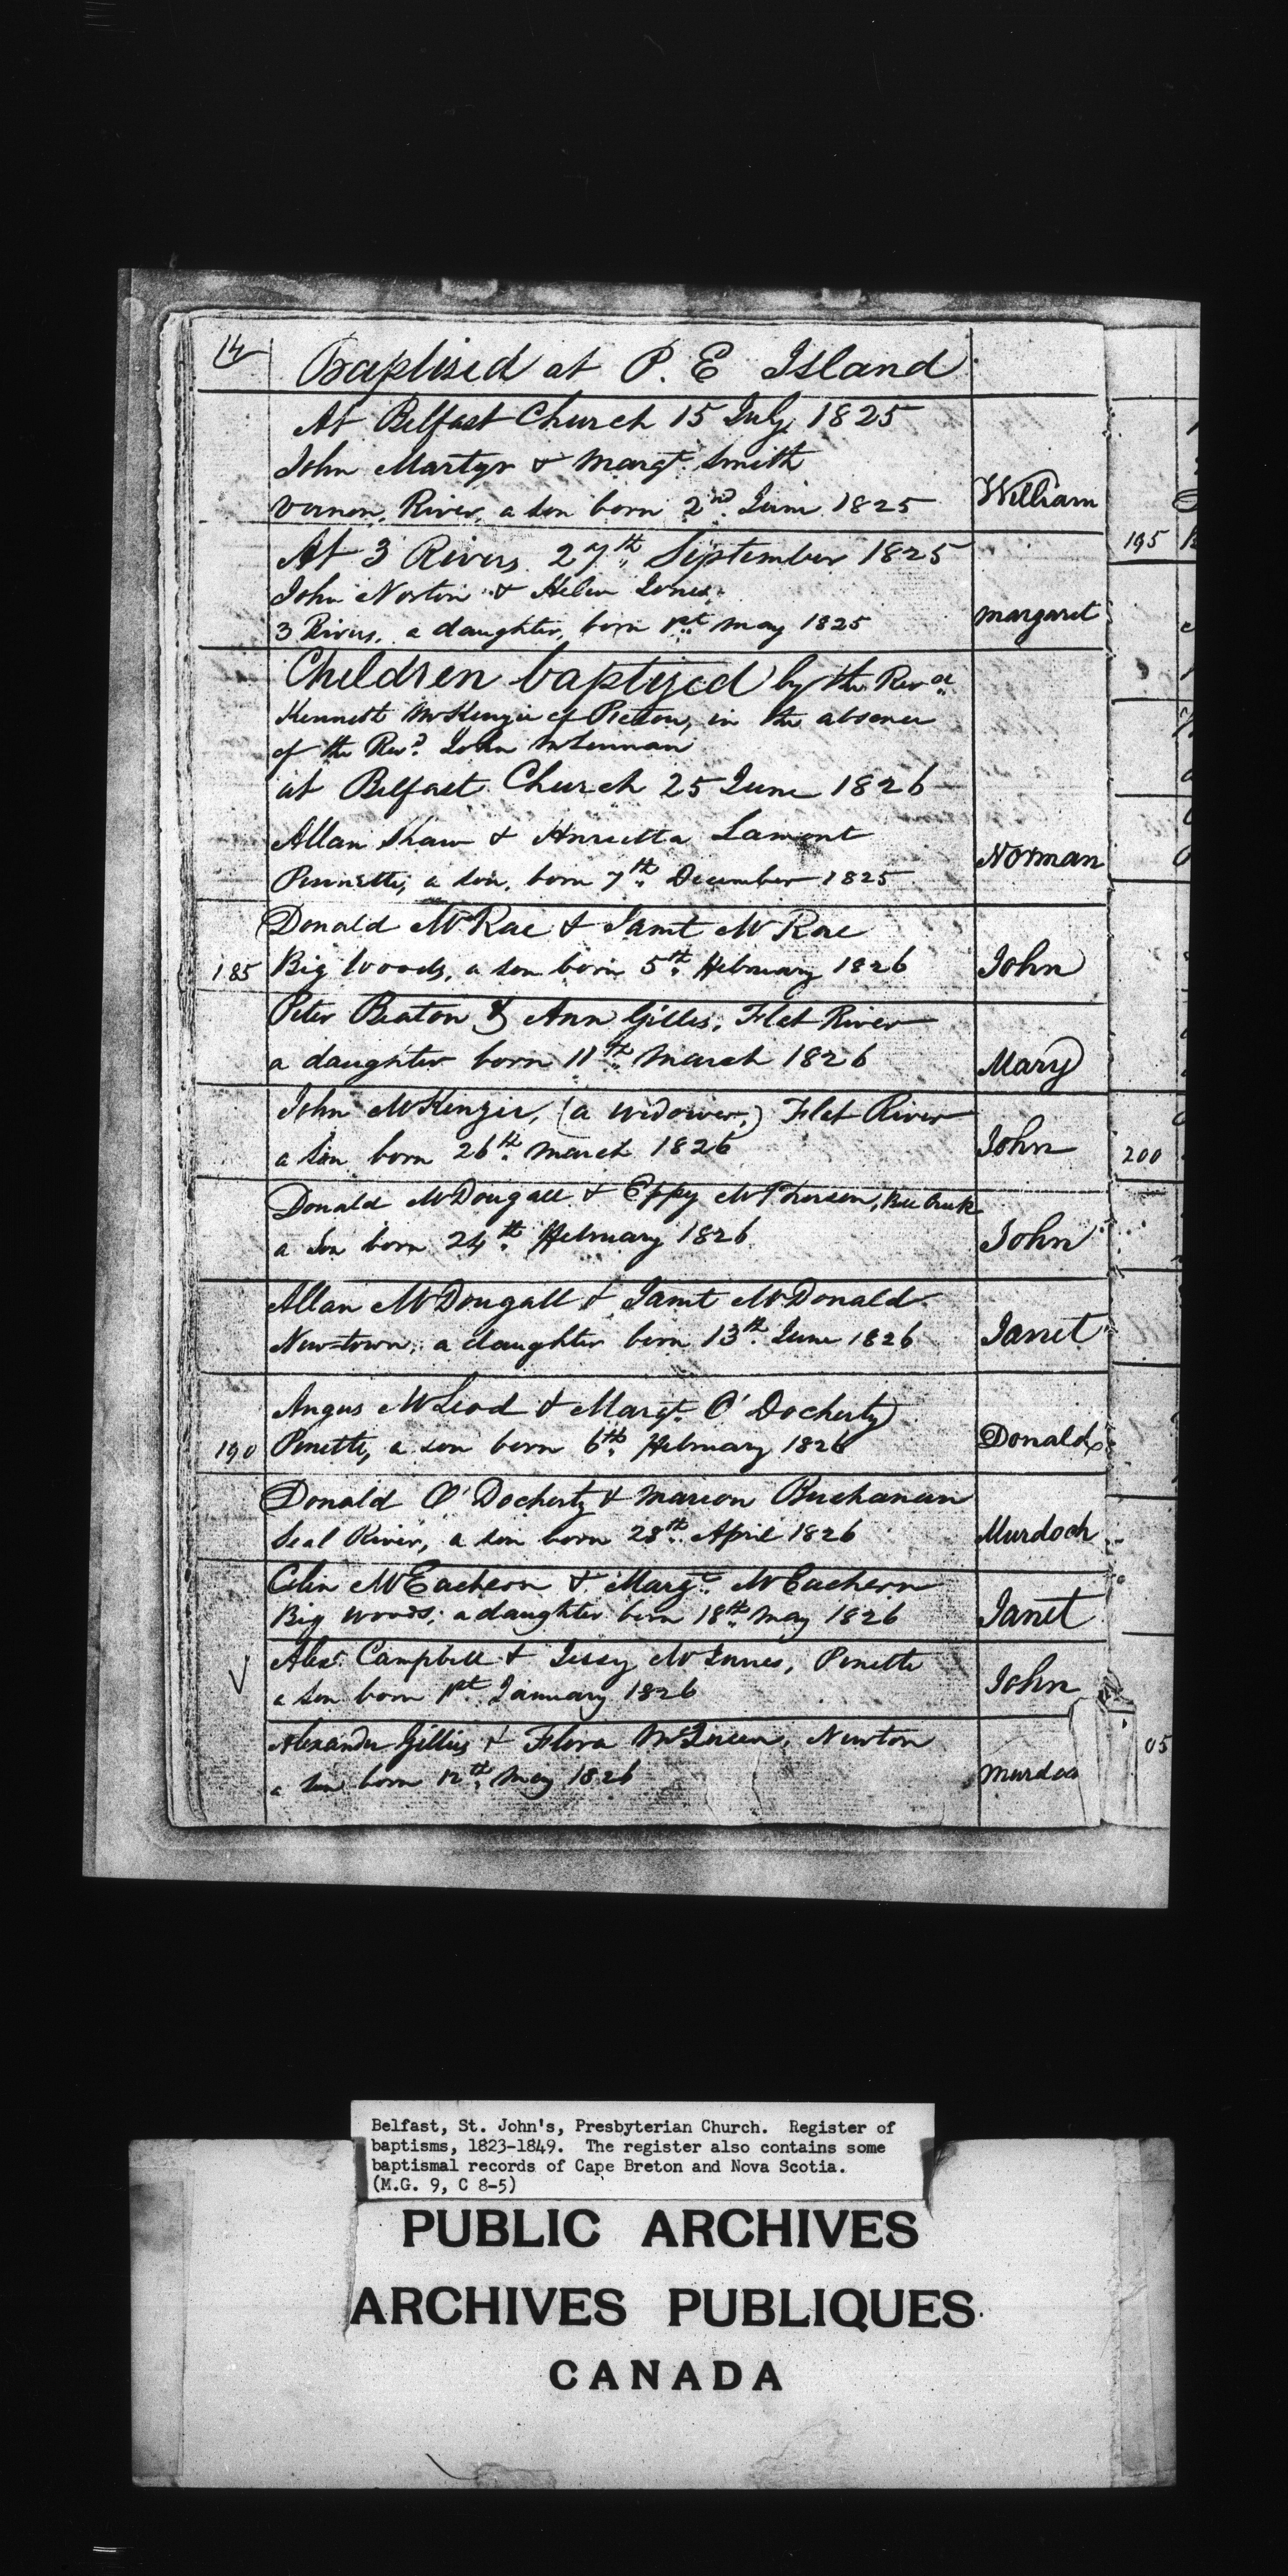 14
Baptised at P. E Island
At Belfast Church 15 July 1825
John Martyr & Margt. Smith
Vernon River, a son born 2nd. June 1825
William
At 3 Rivers 27th. September 1825
John Norton & Helen Jones
3 Rivers, a daughter, born 1st. May 1825
Margaret
Children baptized by the Revd.
Kennett McKenzie of Pictou, in the absence
of the Revd. John McLennan
at Belfast Church 25 June 1826
Allan Shaw & Henrietta Lamont
Pennette, a son, born 7th. December 1825
Norman
Donald McRae & Janet McRae
185 Big Woods, a son born 5th. February 1826
John
Peter Beaton & Ann Gillis, Flat River
a daughter born 11th. March 1826
Mary
John McKenzie, (a widower,) Flat River
a son born 26th. March 1826
John
Donald McDougall & Effy McPherson,
a son born 24th. February 1826
John
Allan McDougall & Janet McDonald
New=town, a daughter born 13th. June 1826
Janet
Angus McLeod & Margt. O'Docherty
190 Penette, a son born 6th. February 1826
Donald
Donald O'Docherty & Marion Buchanan
Seal River, a son born 28th. April 1826
Murdoch
Colin McEachern & Margt. McEachern
Big Woods, a daughter born 18th. May 1826
Janet
Alexr. Campbell & Jessy McInnes, Penette
a son born 1st. January 1826
John
Alexander Gillis & Flora McQueen, Newton
a son born 12th. May 1826
Murdoc
195
200
05
Belfast, St. John's, Presbyterian Church. Register of
baptisms, 1823-1849. The register also contains some
baptismal records of Cape Breton and Nova Scotia.
(M.G. 9, C 8-5)
PUBLIC ARCHIVES
ARCHIVES PUBLIQUES
CANADA